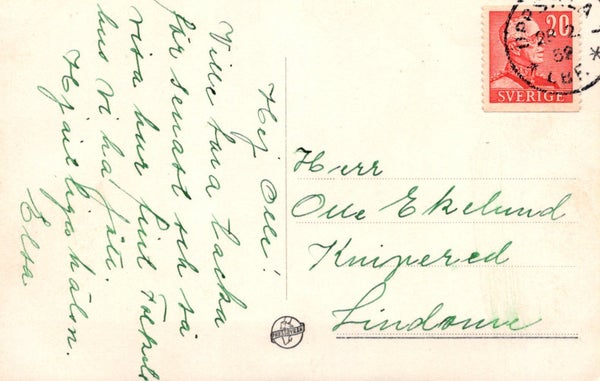 Hej Olle!
Ville bara tacka
för senast och så
visa hur fint
hus vi ha fått.
Hjärtliga hälsn.
Elsa
Herr
Olle Ekelund
Knipered
Lindome
20
SVERIGE
UPPSALA 1
LBR